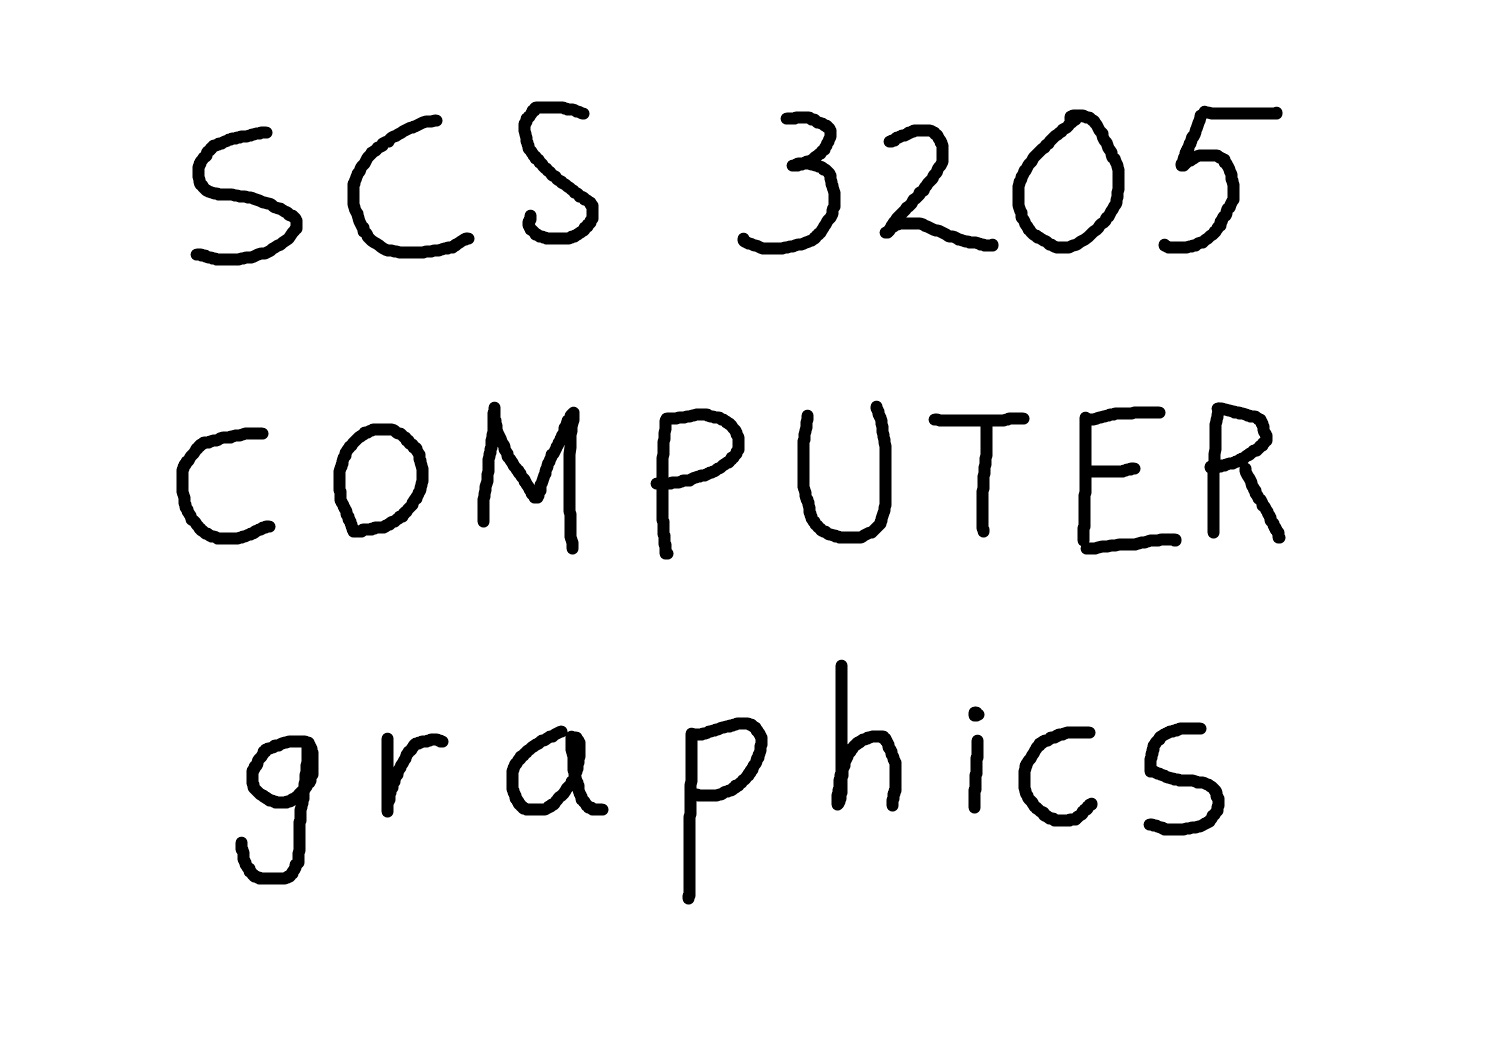 SCS 3205
COMPUTER
graphics